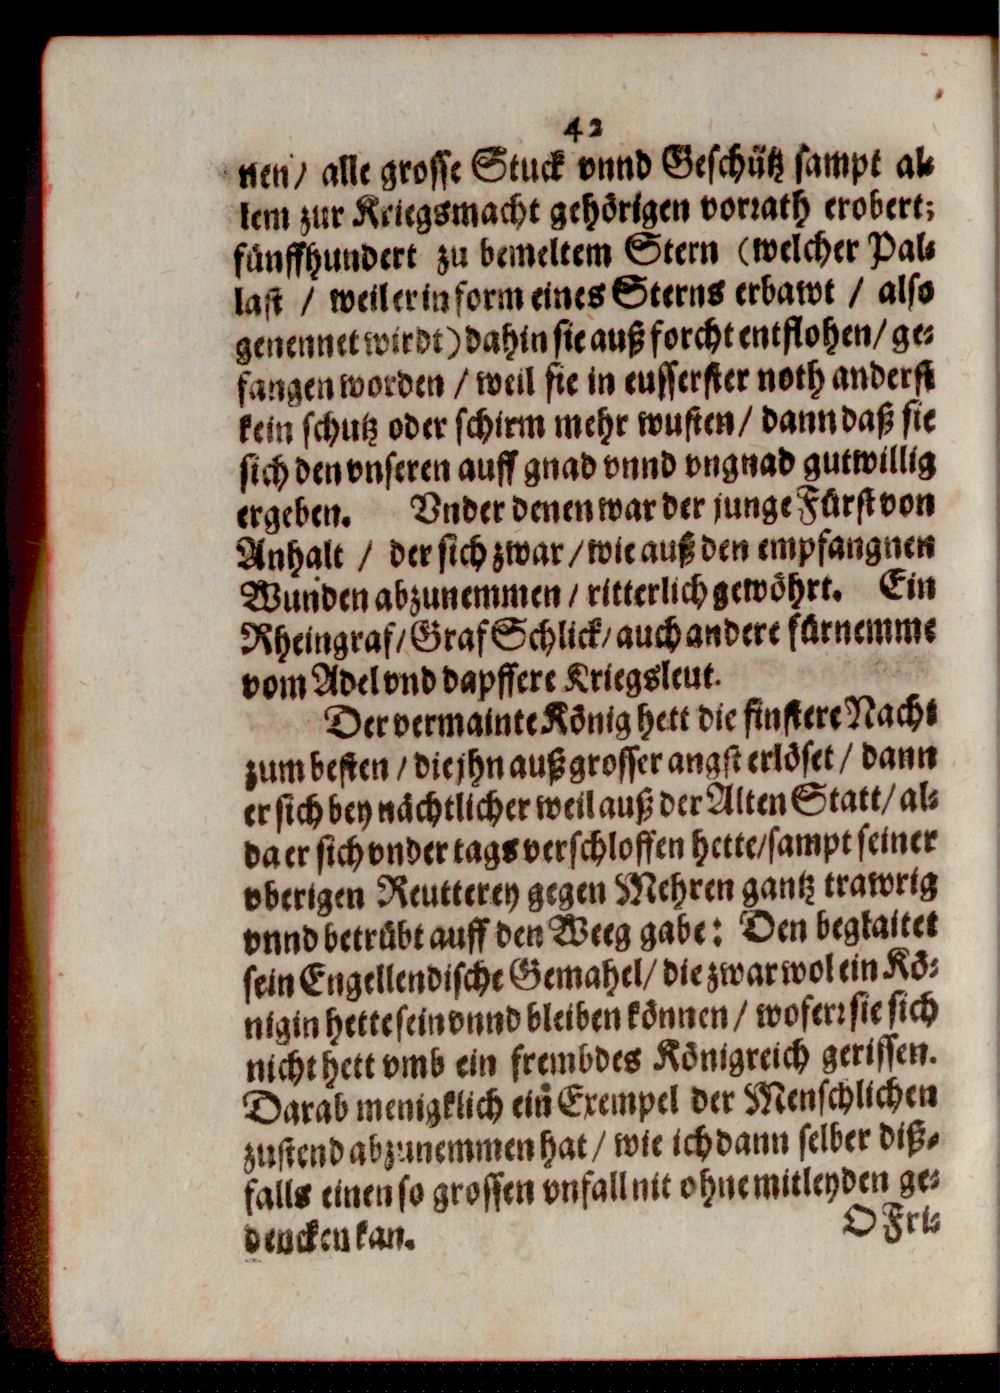 42
nen/ alle grosse Stuck vnnd Geschütz sampt al⸗
lem zur Kriegsmacht gehörigen vorꝛath erobert;
fünffhundert zu bemeltem Stern (welcher Pal⸗
last / weil er in form eines Sterns erbawt / also
genennet wirdt) dahin sie auß forcht entflohen/ ge⸗
fangen worden / weil sie in eusserster noth anderst
kein schutz oder schirm mehr wusten/ dann daß sie
sich den vnseren auff gnad vnnd vngnad gutwillig
ergeben. Vnder denen war der junge Fürst von
Anhalt / der sich zwar / wie auß den empfangnen
Wunden abzunemmen / ritterlich gewöhrt. Ein
Rheingraf/ Graf Schlick/ auch andere fürnemme
vom Adel vnd dapffere Kriegsleut.
Der vermainte König hett die finstere Nacht
zum besten / die jhn auß grosser angst erlöset / dann
er sich bey nächtlicher weil auß der Alten Statt/ al⸗
da er sich vnder tags verschlossen hette/ sampt seiner
vberigen Reutterey gegen Mehren gantz trawrig
vnnd betrübt auff den Weeg gabe: Den beglaitet
sein Engellendische Gemahel/ die zwar wol ein Kö⸗
nigin hette sein vnnd bleiben können / woferꝛ sie sich
nicht hett vmb ein frembdes Königreich gerissen.
Darab menigklich ein Exempel der Menschlichen
zustend abzunemmen hat / wie ich dann selber diß⸗
falls einen so grossen vnfall nit ohne mitleyden ge⸗
dencken kan.
O Fri⸗